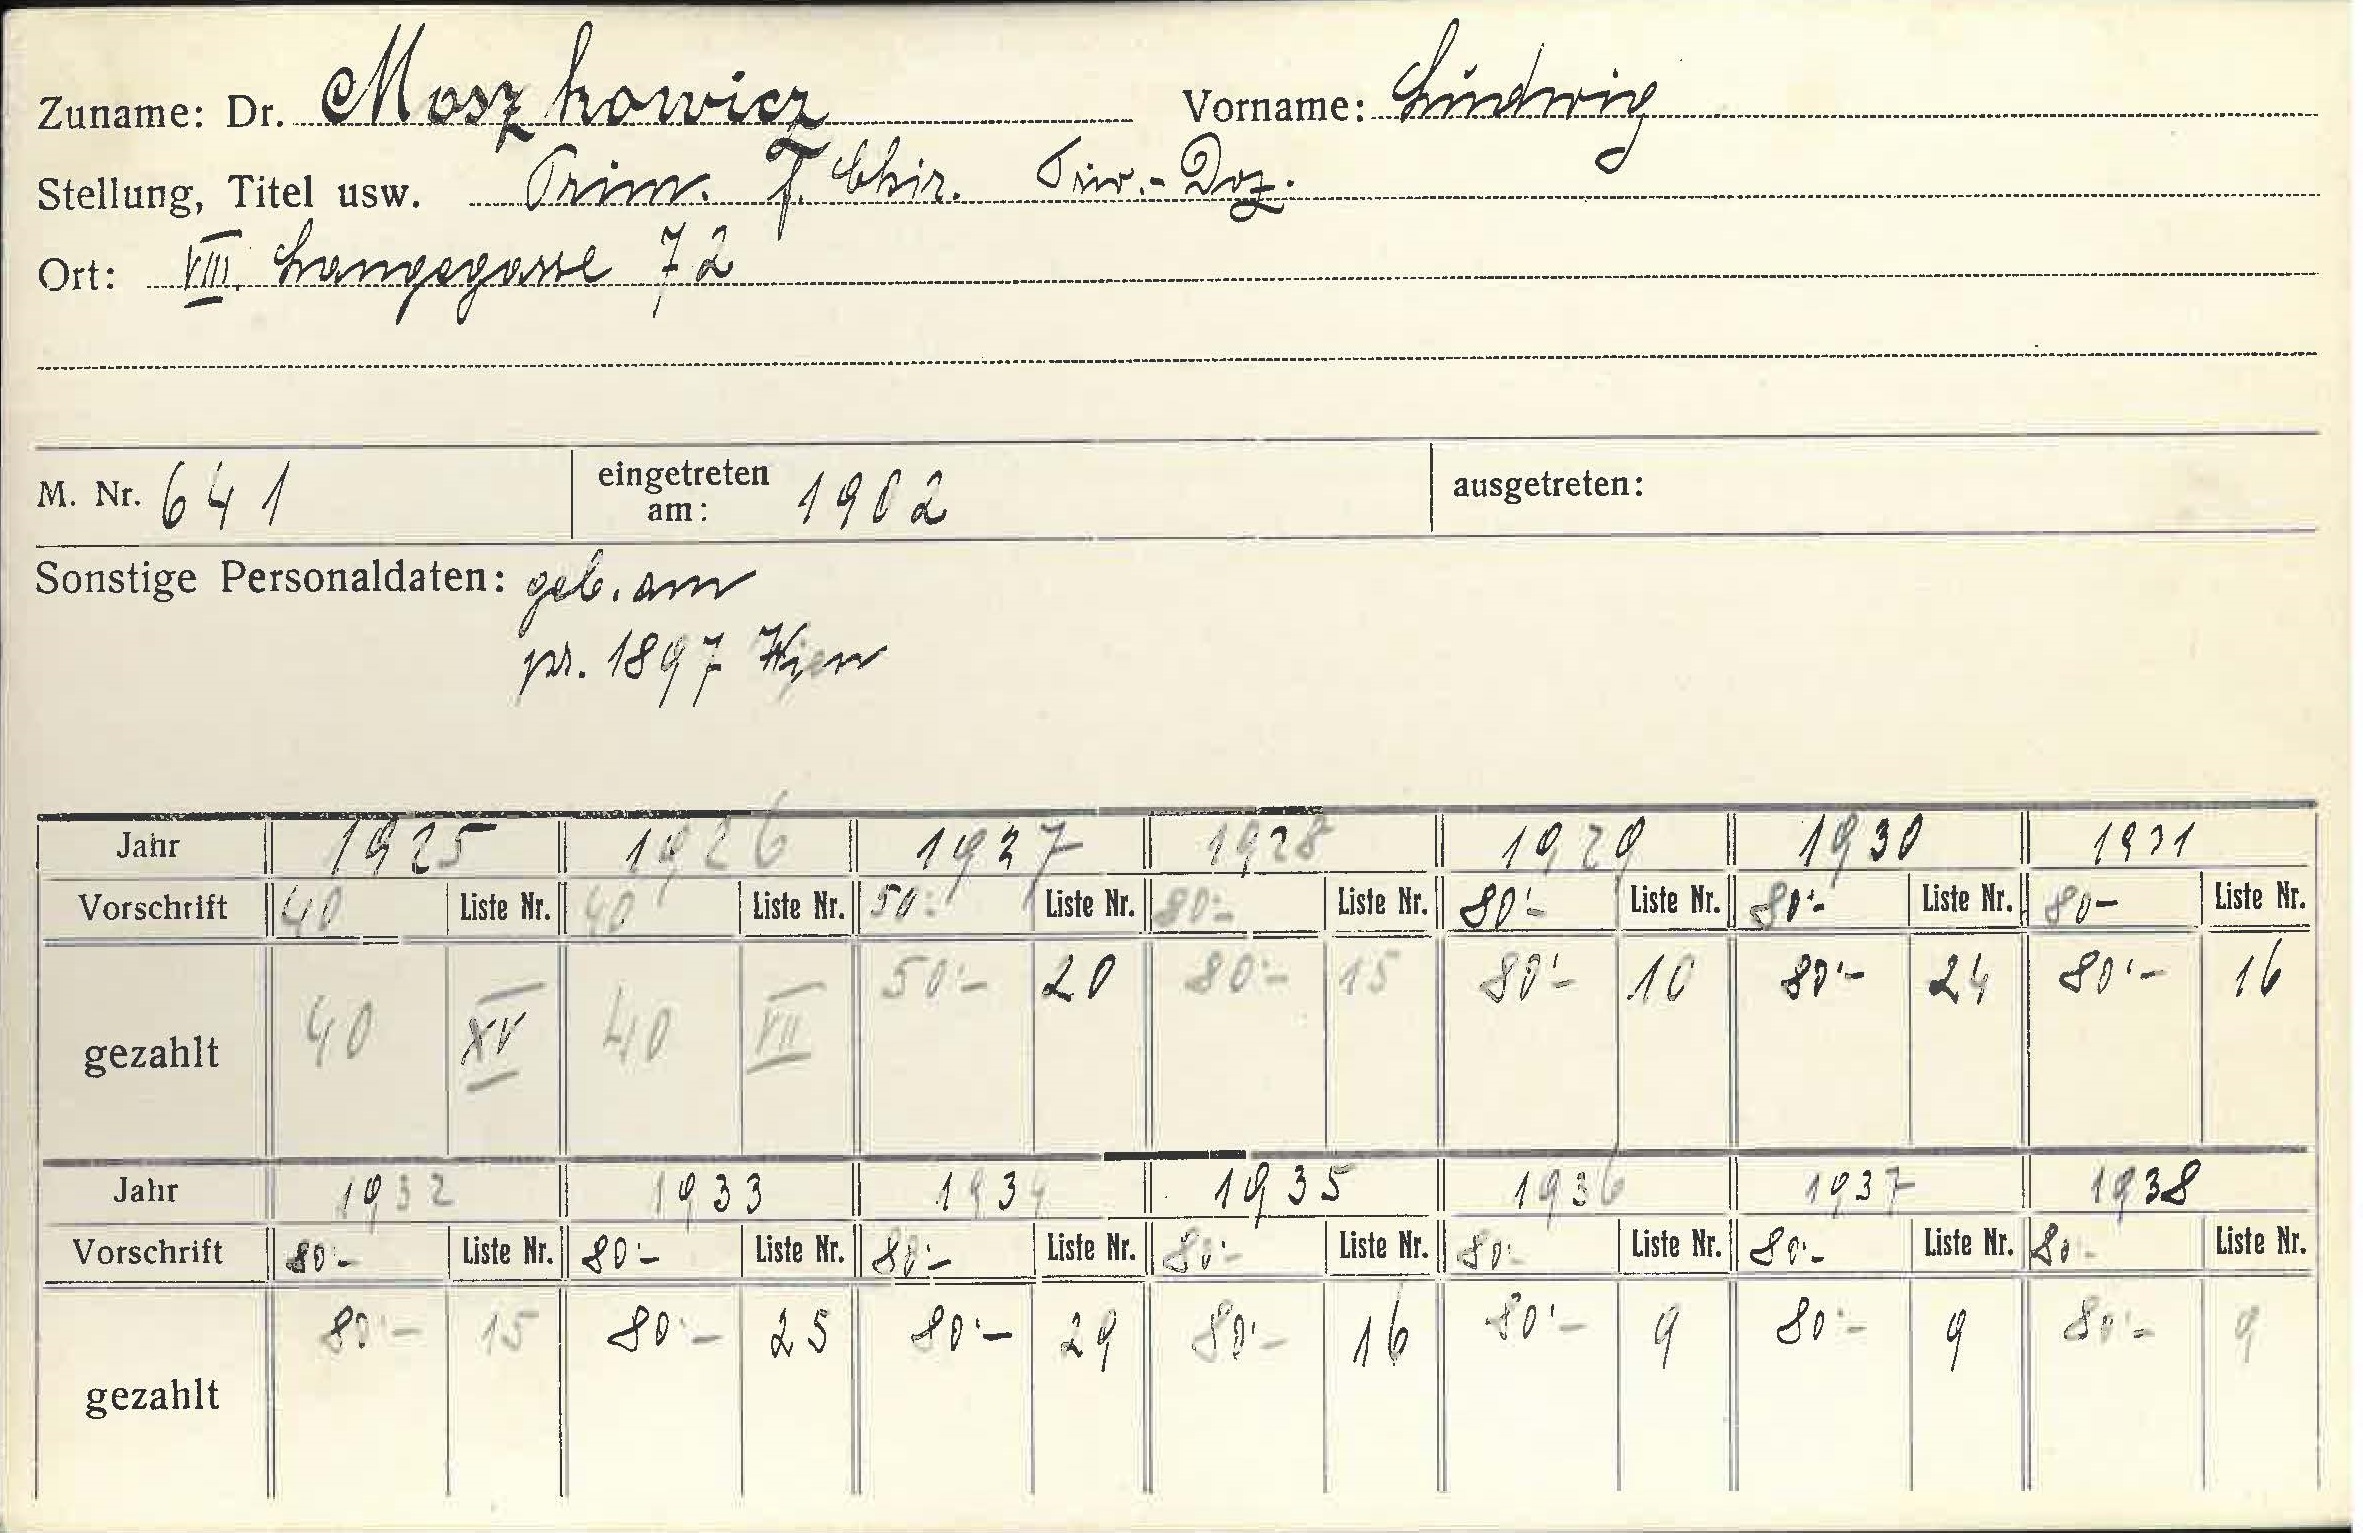 Zuname: Dr. Moszkowicz Vorname: Ludwig
Stellung, Titel usw. Prim. f. Chir. Priv.-Doz.
Ort: VIII. Langegasse 72
M. Nr. 641 eingetreten am: 1902 ausgetreten:
Sonstige Personaldaten: geb. am
pr. 1897 Wien
Jahr 1925 1926 1927 1928 1929 1930 1931
Vorschrift 40 Liste Nr. 40 Liste Nr. 50.- Liste Nr. 80.- Liste Nr. 80.- Liste Nr. 80.- Liste Nr. 80- Liste Nr.
gezahlt 40 XV 40 VII 50.- 20 80.- 15 80.- 10 80.- 24 80.- 16
Jahr 1932 1933 1934 1935 1936 1937 1938
Vorschrift 80.- Liste Nr. 80.- Liste Nr. 80.- Liste Nr. 80.- Liste Nr. 80.- Liste Nr. 80.- Liste Nr. 80.- Liste Nr.
gezahlt 80.- 15 80.- 25 80.- 29 80.- 16 80.- 9 80.- 9 80.- 9